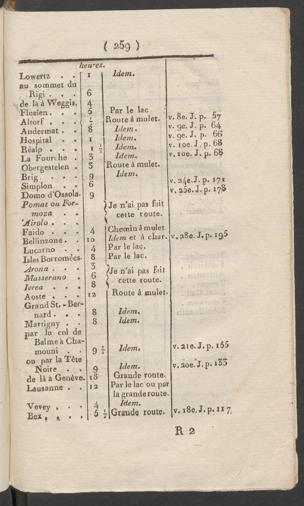 ( 289 )
heures.
Lowertz . . 1 Idem.
au sommet du
Rigi . . . 6
de là à Weggis. 4
Fluelen. . . 5 Par le lac
Altorf . . . ½ Route à mulet. v. 8e. J. p. 57
Andermat . . 8 Idem. v. 9e. J. p. 64
Hospital . . 1 Idem. v. 9e. J. p. 66
Réalp . . . 1 ½ Idem. v. 10e. J. p. 68
La Fourche . 3 Idem. v. 10e. J. p. 68
Obergestelen . 3 Route à mulet.
Brig. . . . 9 Idem.
Simplon . . 6 v. 24e. J. p. 171
Domo d'Ossola. 9 v. 25e. J. p. 178
Pomat ou For- } Je n'ai pas fait
moza . . cette route.
Airolo . . .
Faido . . . 4 Chemin à mulet
Bellinzone. . 10 Idem et à char. v. 28e. J. p. 195
Lucarno . . 4 Par le lac.
Isles Borromées. 8 Par le lac.
Arona . . . 3 } Je n'ai pas fait
Masserano . 6
Ivrea . . . 8 cette route.
Aoste . . . 12 Route à mulet.
Grand St. - Ber-
nard . . . 8 Idem.
Martigny . . 8 Idem.
par la col de
Balme à Cha-
mouni . . 9 ½ Idem. v. 21e. J. p. 155
ou par la Tête
Noire . . 9 Idem. v. 20e. J. p. 133
de là à Genève. 18 Grande route.
Lausanne . . 12 Par le lac ou par
la grande route.
Vevey . . . 4 Idem.
Bex . . . 5 ½ Grande route. v. 18e. J. p. 117
R 2